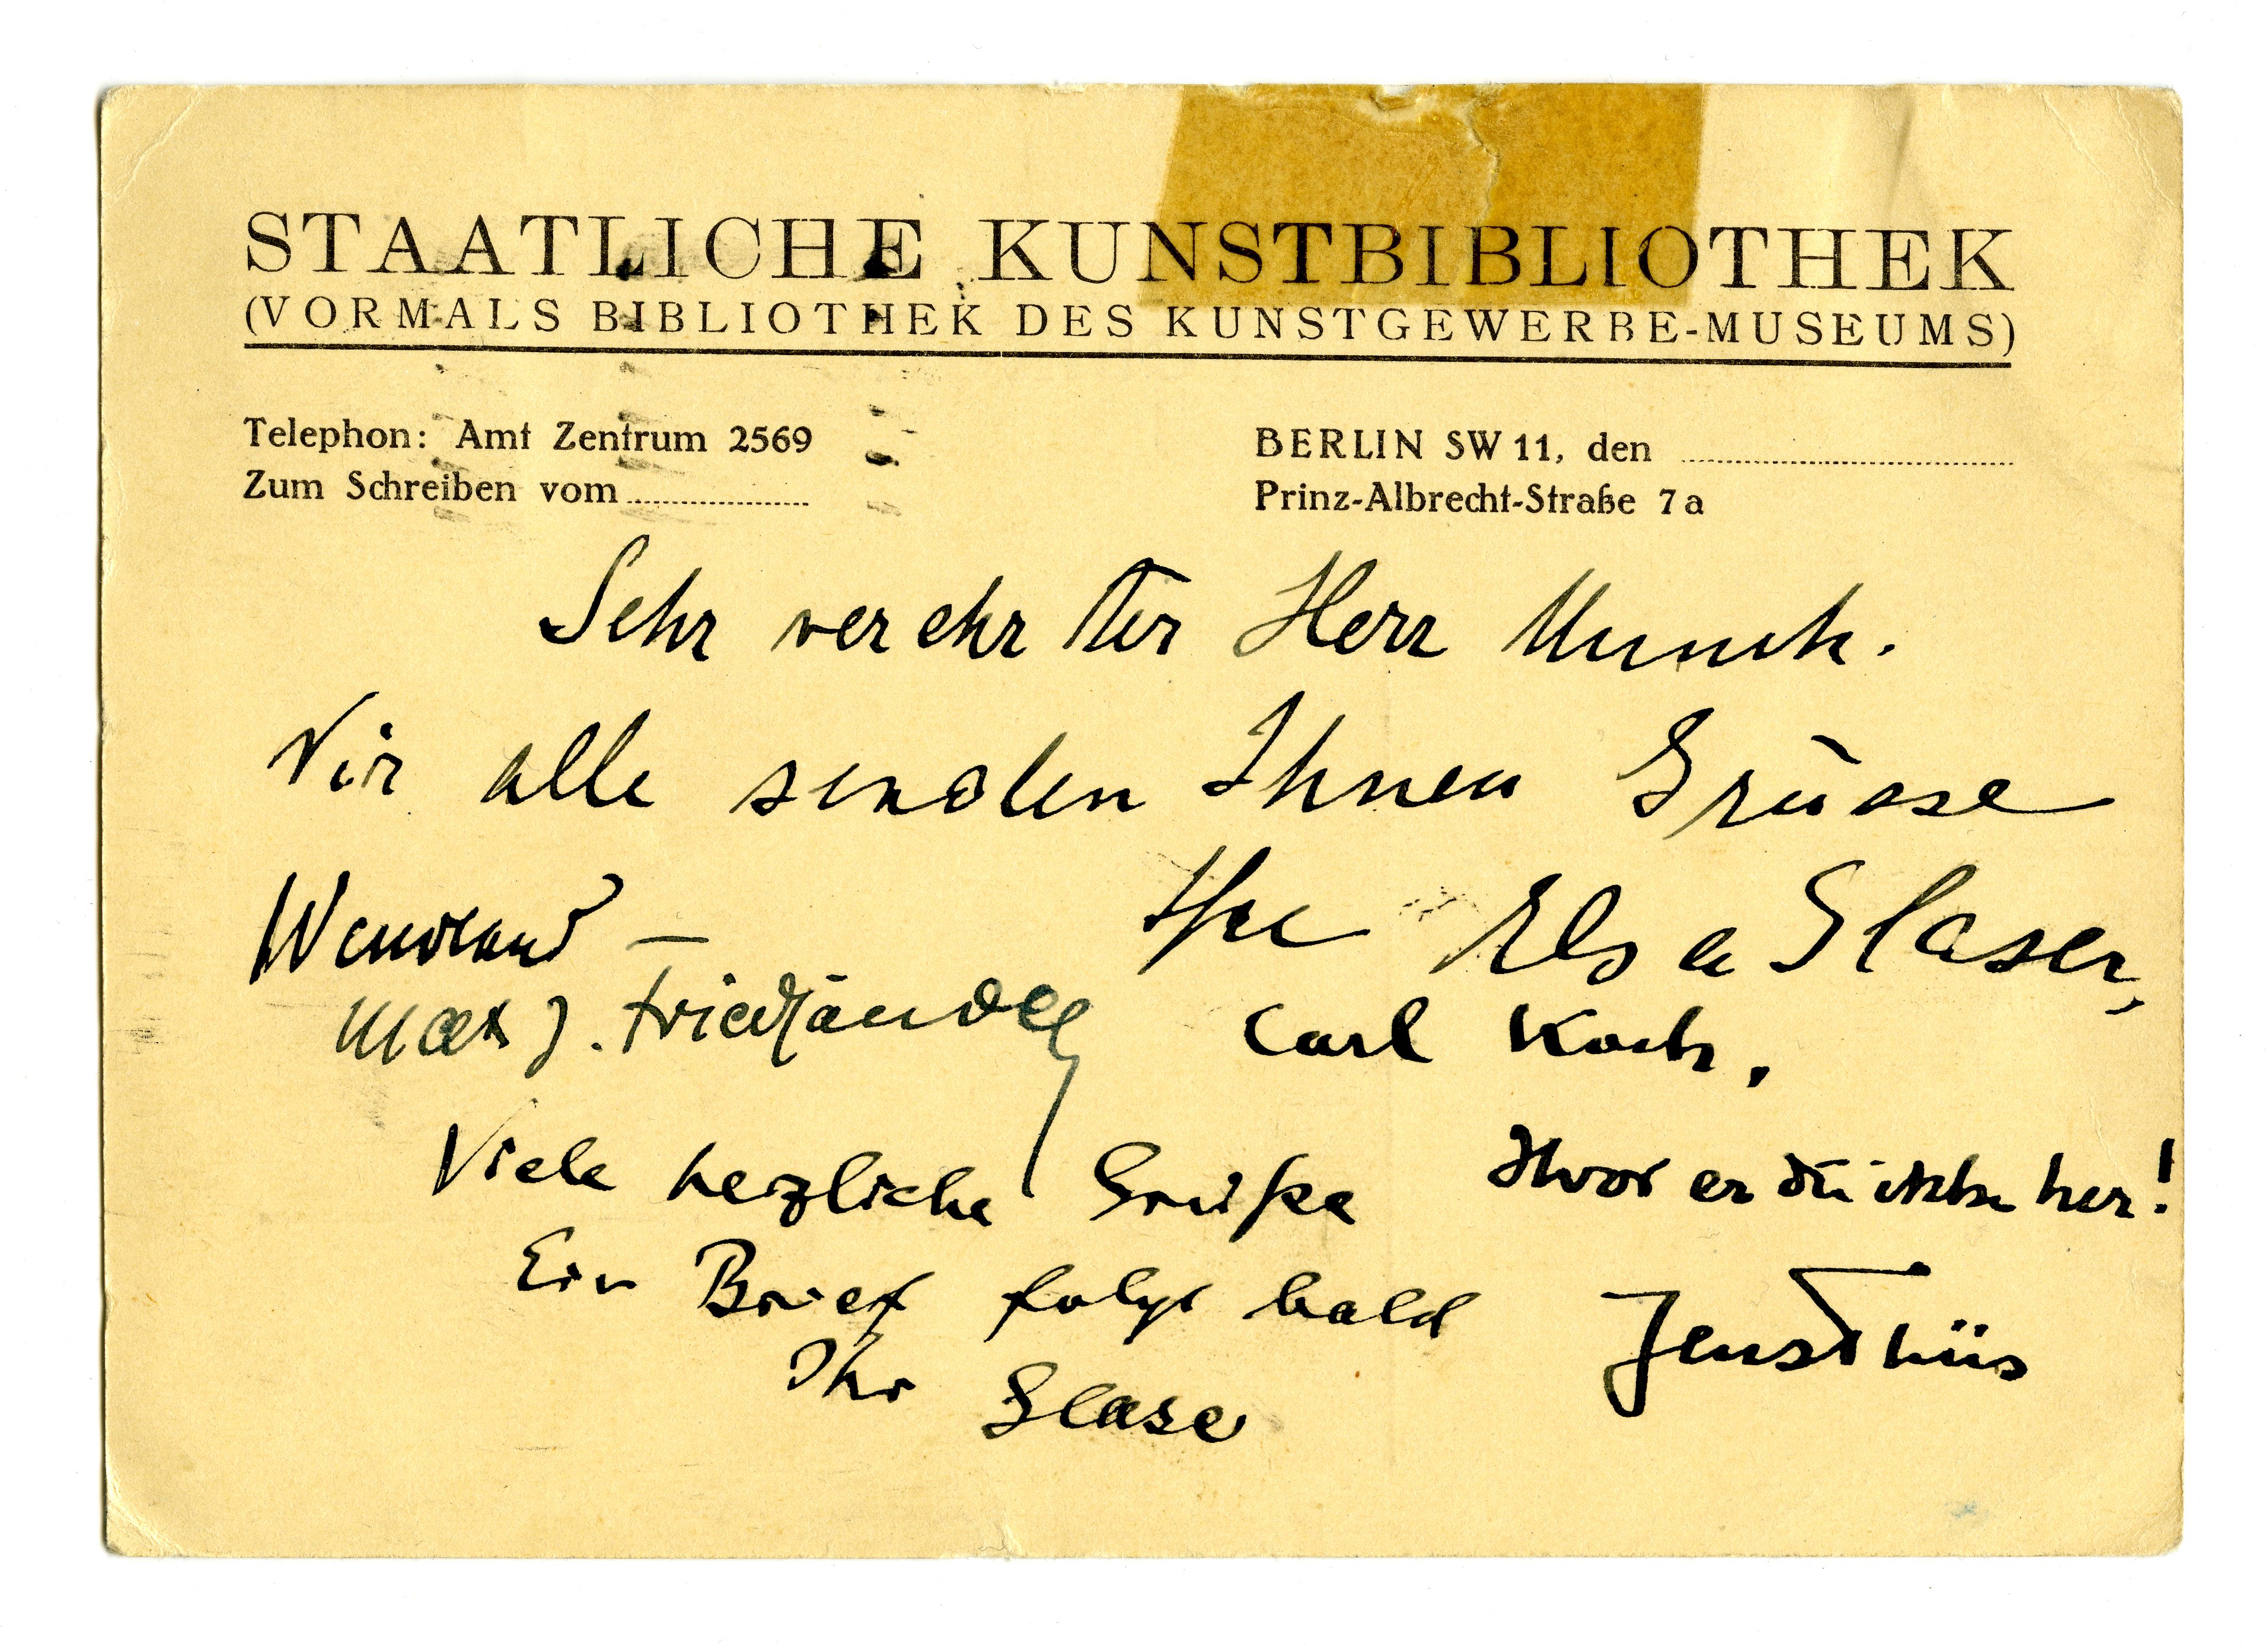 STAATLICHE KUNSTBIBLIOTHEK
(VORMALS BIBLIOTHEK DES KUNSTGEWERBE-MUSEUMS)
Telephon: Amt Zentrum 2569
Zum Schreiben vom
BERLIN SW 11, den
Prinz-Albrecht-Straße 7a
Sehr verehrter Herr Munch.
Wir alle senden Ihnen Grüsse
Ihre Elsa Glaser,
Wendland –
Max J. Friedländer
Carl Koch.
Viele herzliche Grüße
Ein Brief folgt bald
Ihr Glaser
Hvor er du ikke her!
Jens Thiis